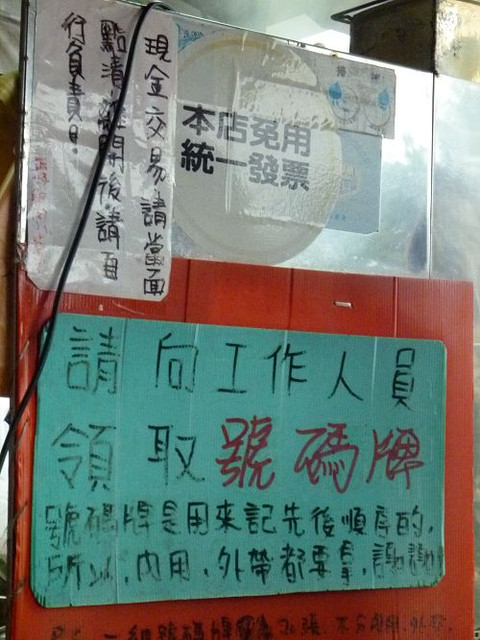 現金交易請當面
點清,離開後請自
行負責!
本店免用
統一發票
請向工作人員
領取號碼牌
號碼牌是用來記先後順序的,
所以,內用、外帶都要拿,謝謝!